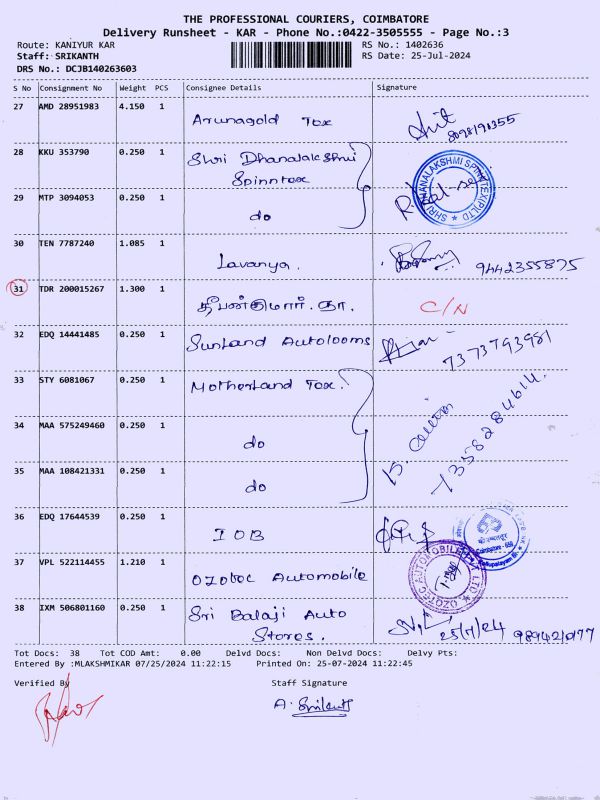 THE PROFESSIONAL COURIERS, COIMBATORE
Delivery Runsheet - KAR - Phone No.:0422-3505555 - Page No.:3
Route: KANIYUR KAR
RS No.: 1402636
Staff: SRIKANTH
RS Date: 25-Jul-2024
DRS No.: DCJB140263603
S No Consignment No Weight PCS Consignee Details Signature
27 AMD 28951983 4.150 1 Arunagold Tex
8098190355
28 KKU 353790 0.250 1 Shri Dhanalakshmi
Spinntex
SHRI DHANALAKSHMI SPINTEX(P)LTD
29 MTP 3094053 0.250 1 do
30 TEN 7787240 1.085 1 Lavanya.
9442355875
31 TDR 200015267 1.300 1 தீபன்குமார். தா. C/N
32 EDQ 14441485 0.250 1 Sunland Autolooms
7373793981
33 STY 6081067 0.250 1 Motherland Tex.
34 MAA 575249460 0.250 1 do
35 MAA 108421331 0.250 1 do
36 EDQ 17644539 0.250 1 IOB
37 VPL 522114455 1.210 1 Ozotec Automobile
OZOTEC AUTOMOBILE LTD
38 IXM 506801160 0.250 1 Sri Balaji Auto
Stores.
25/7/24
Tot Docs: 38 Tot COD Amt: 0.00 Delvd Docs: Non Delvd Docs: Delvy Pts:
Entered By :MLAKSHMIKAR 07/25/2024 11:22:15 Printed On: 25-07-2024 11:22:45
Verified By Staff Signature
A. Srikanth